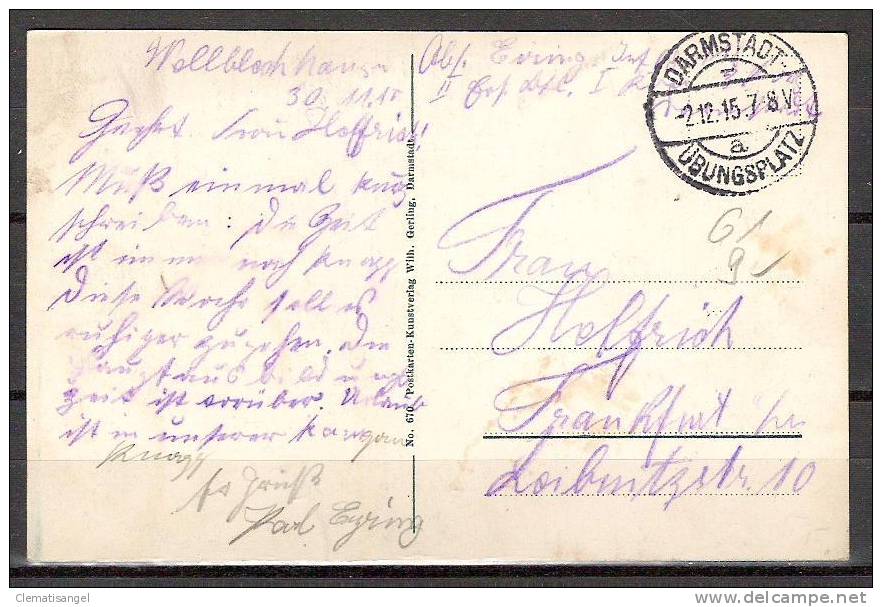 Wellblechhausen
30. 11. 15
Geehrt. Frau Helfrich!
Muß einmal kurz
schreiben: Die Zeit
ist immer noch knapp
Diese Woche soll es
ruhiger zugehen. Die
Hauptausbildungs
zeit ist vorüber. Urlaub
ist in unserer
knapp
Es grüßt
Karl Eyring
No. 670 Postkarten-Kunstverlag Wilh. Gerling, Darmstadt.
Abs. Eyring Inf
II Ers. Btl. I
DARMSTADT-
-2.12.15.7-8V.
a
ÜBUNGSPLATZ
61
9-
Frau
Helfrich
Frankfurt
Leibnitzstr. 10
Clematisangel
delcampe.net